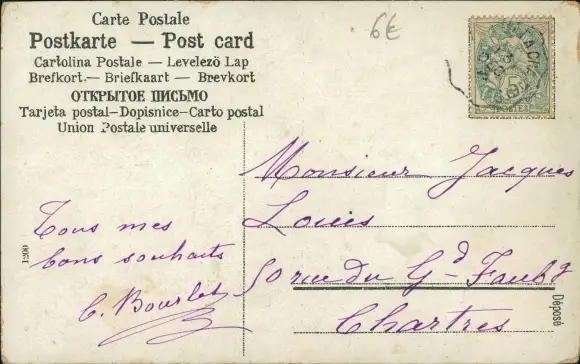 Carte Postale
Postkarte — Post card
Cartolina Postale — Levelező Lap
Brefkort.— Briefkaart — Brevkort
ОТКРЫТОЕ ПИСЬМО
Tarjeta postal-Dopisnice-Carto postal
Union Postale universelle
6€
5
POSTES
Monsieur Jacques
Louis
50 rue du Gd Faubg
Chartres
Tous mes
bons souhaits
C. Bourlet
1290
Déposé